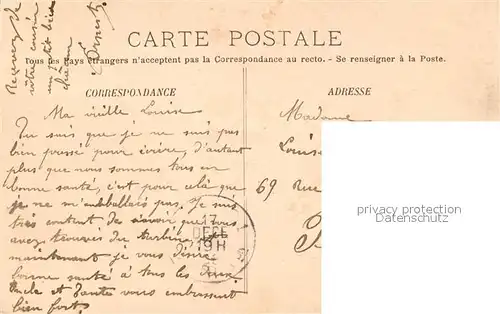 Recevez de
notre cousin
un petit bien
Ernest
CARTE POSTALE
Tous les pays étrangers n'acceptent pas la Correspondance au recto. - Se renseigner à la Poste.
CORRESPONDANCE
ADRESSE
Ma vieille Louise
Tu sais que je ne suis pas
bien poussé pour écrire, d'autant
plus que nous sommes tous en
bonne santé, c'est pour cela que
je ne m'emballais pas, Je suis
très content de savoir que vous
avez trouvés du turbin,
maintenant je vous désire
bonne santé à tous les deux.
Oncle et Tante vous embrassent
bien fort.
17
DECE
19H
Madame
Louise
69 Rue
privacy protection
Datenschutz